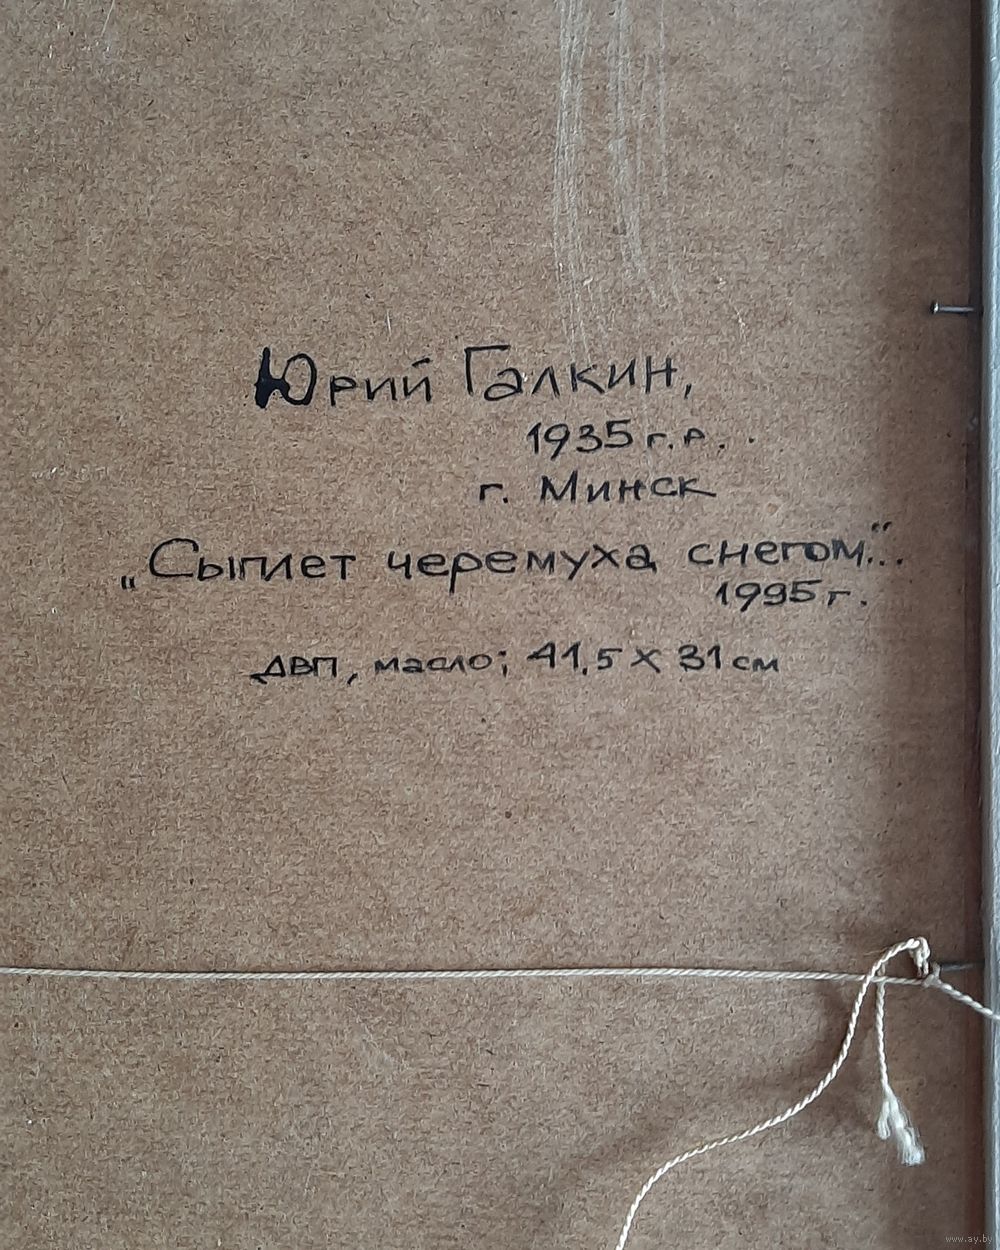 Юрий Галкин,
1935 г.р.
г. Минск
„Сыплет черемуха снегом..."
1995 г.
ДВП, масло; 41,5 х 31 см
www.ay.by